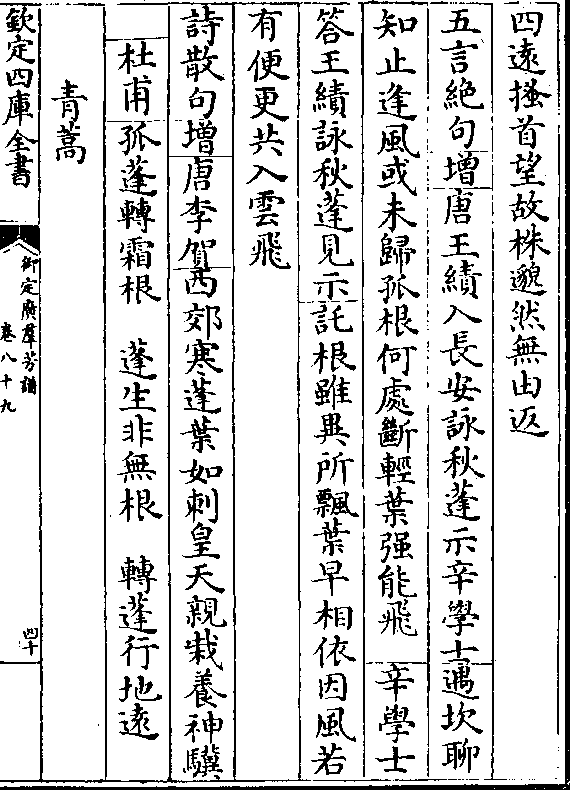 四遠搔首望故株邈然無由返
五言絶句增唐王績入長安詠秋蓬示辛學士遇坎聊
知止逢風或未歸孤根何處斷輕葉强能飛　辛學士
答王績詠秋蓬見示託根雖異所飄葉早相依因風若
有便更共入雲飛
詩散句增唐李賀西郊寒蓬葉如刺皇天親栽養神驥
杜甫孤蓬轉霜根　蓬生非無根　轉蓬行地遠
青蒿
欽定四庫全書
御定廣羣芳譜
卷八十九
四十